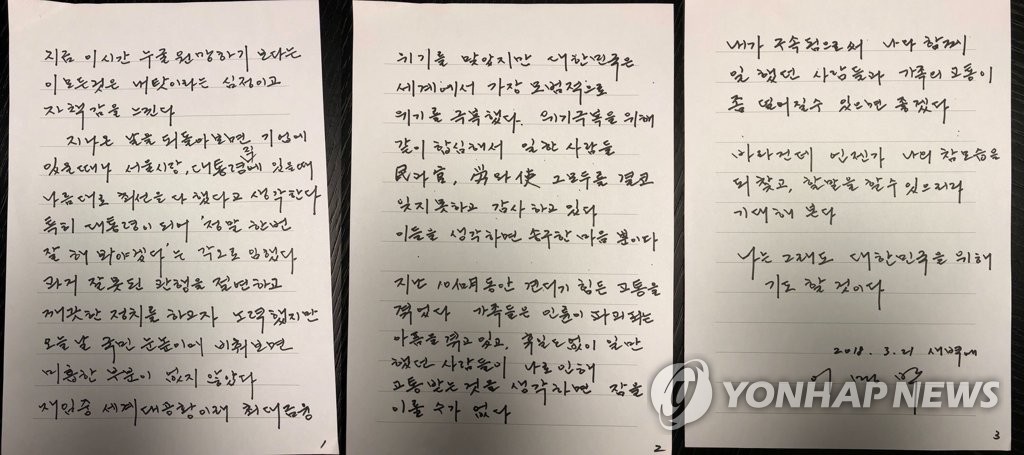 지금 이시간 누굴 원망하기 보다는
이 모든것은 내탓이라는 심정이고
자책감을 느낀다
지나온 날을 되돌아보면, 기업에
있을때나 서울시장, 대통령직에 있을때
나름대로 최선을 다 했다고 생각한다
특히 대통령이 되어 '정말 한번
잘 해 봐야겠다'는 각오로 임했다
과거 잘못된 관행을 절연하고
깨끗한 정치를 하고자 노력했지만
오늘날 국민 눈높이에 비춰보면
미흡한 부분이 없지 않았다
재임중 세계대공황이래 최대 금융
1
위기를 맞았지만 대한민국은
세계에서 가장 모범적으로
위기를 극복했다. 위기극복을 위해
같이 합심해서 일한 사람들
民과 官, 勞와 使 그 모두를 결코
잊지못하고 감사하고 있다
이들을 생각하면 송구한 마음 뿐이다
지난 10개月 동안 견디기 힘든 고통을
겪었다 가족들은 인륜이 파괴되는
아픔을 겪고 있고, 휴일도 없이 일만
했던 사람들이 나로 인해
고통받는 것을 생각하면 잠을
이룰 수가 없다
2
내가 구속됨으로써 나와 함께
일 했던 사람들과 가족의 고통이
좀 덜어질수 있으면 좋겠다
바라건데 언젠가 나의 참모습을
되찾고, 할말을 할 수 있으리라
기대해 본다
나는 그래도 대한민국을 위해
기도 할 것이다
2018. 3. 21 새벽에
이명박
3
YONHAP NEWS